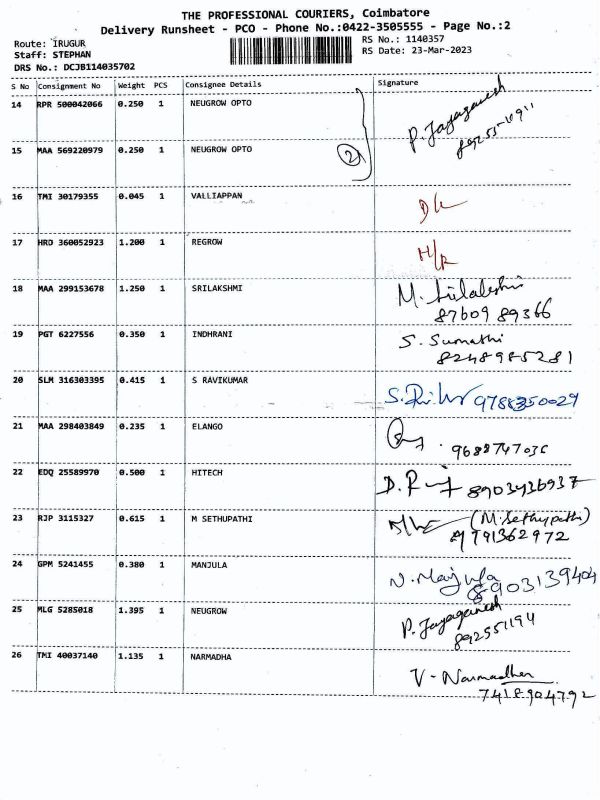 THE PROFESSIONAL COURIERS, Coimbatore
Delivery Runsheet - PCO - Phone No.:0422-3505555 - Page No.:2
Route: IRUGUR
RS No.: 1140357
Staff: STEPHAN
RS Date: 23-Mar-2023
DRS No.: DCJB114035702
S No Consignment No Weight PCS Consignee Details Signature
14 RPR 500042066 0.250 1 NEUGROW OPTO P. Jayaganesh
15 MAA 569220979 0.250 1 NEUGROW OPTO 2
16 TMI 30179355 0.045 1 VALLIAPPAN
17 HRD 360052923 1.200 1 REGROW H/R
18 MAA 299153678 1.250 1 SRILAKSHMI M. Srilakshmi
87609 89366
19 PGT 6227556 0.350 1 INDHRANI S. Sumathi
8248985281
20 SLM 316303395 0.415 1 S RAVIKUMAR 9788350029
21 MAA 298403849 0.235 1 ELANGO
9688747036
22 EDQ 25589970 0.500 1 HITECH 8903436937
23 RJP 3115327 0.615 1 M SETHUPATHI (M.Sethupathi)
9791362972
24 GPM 5241455 0.380 1 MANJULA N. Manjula
8903139404
25 MLG 5285018 1.395 1 NEUGROW P. Jayaganesh
892551194
26 TMI 40037140 1.135 1 NARMADHA V - Narmadha
7418904792